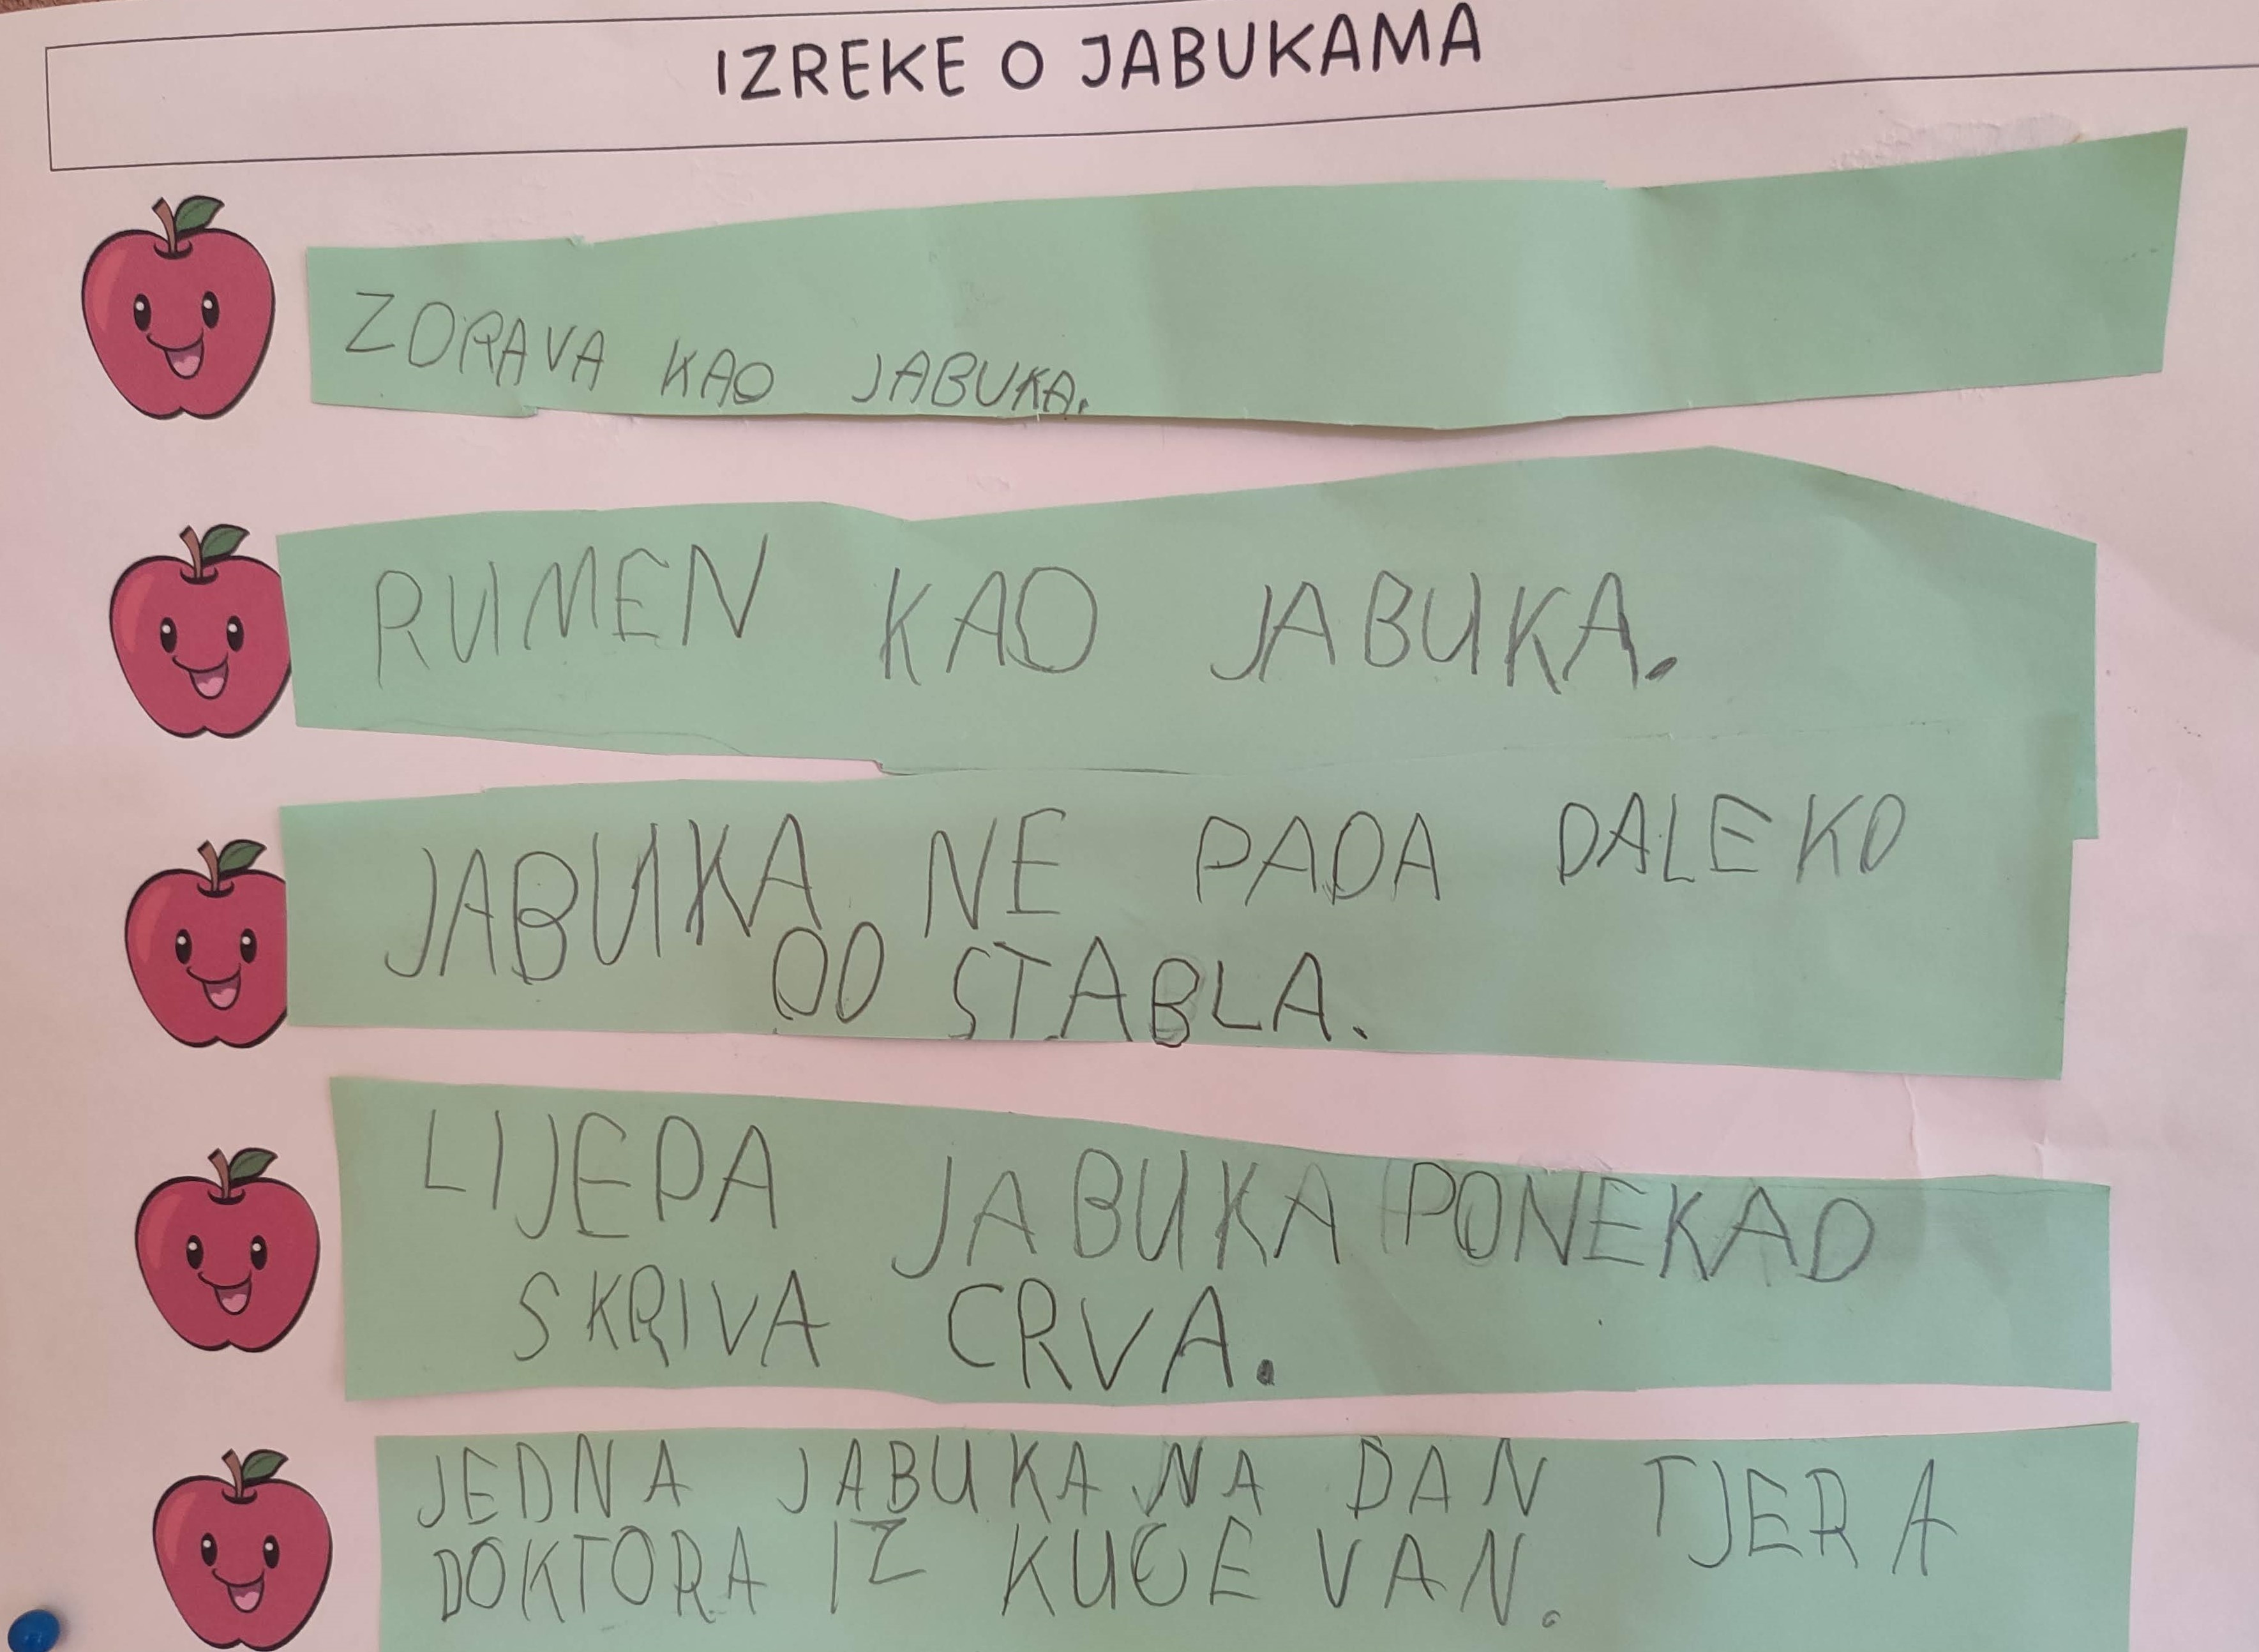 IZREKE O JABUKAMA
ZDRAVA KAO JABUKA.
RUMEN KAO JABUKA.
JABUKA NE PADA DALEKO
OD STABLA.
LIJEPA JABUKA PONEKAD
SKRIVA CRVA.
JEDNA JABUKA NA DAN TJERA
DOKTORA IZ KUĆE VAN.